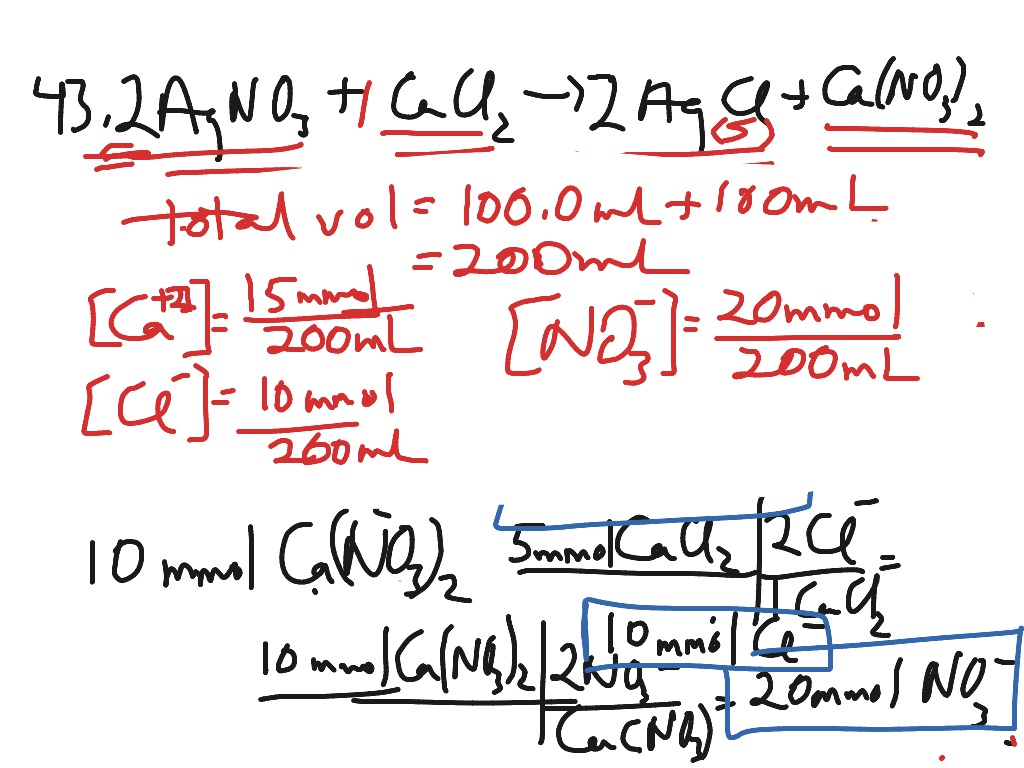 43. 2AgNO3 + 1 CaCl2 → 2AgCl(s) + Ca(NO3)2
total vol = 100.0 ml + 100mL
= 200mL
[Ca+2] = 15 mmol / 200mL
[NO3-] = 20mmol / 200mL
[Cl-] = 10 mmol / 200mL
10 mmol Ca(NO3)2
5mmol CaCl2 | 2Cl- / 1 CaCl2
10 mmol Cl-
10 mmol Ca(NO3)2 | 2NO3- / Ca(NO3) = 20mmol NO3-